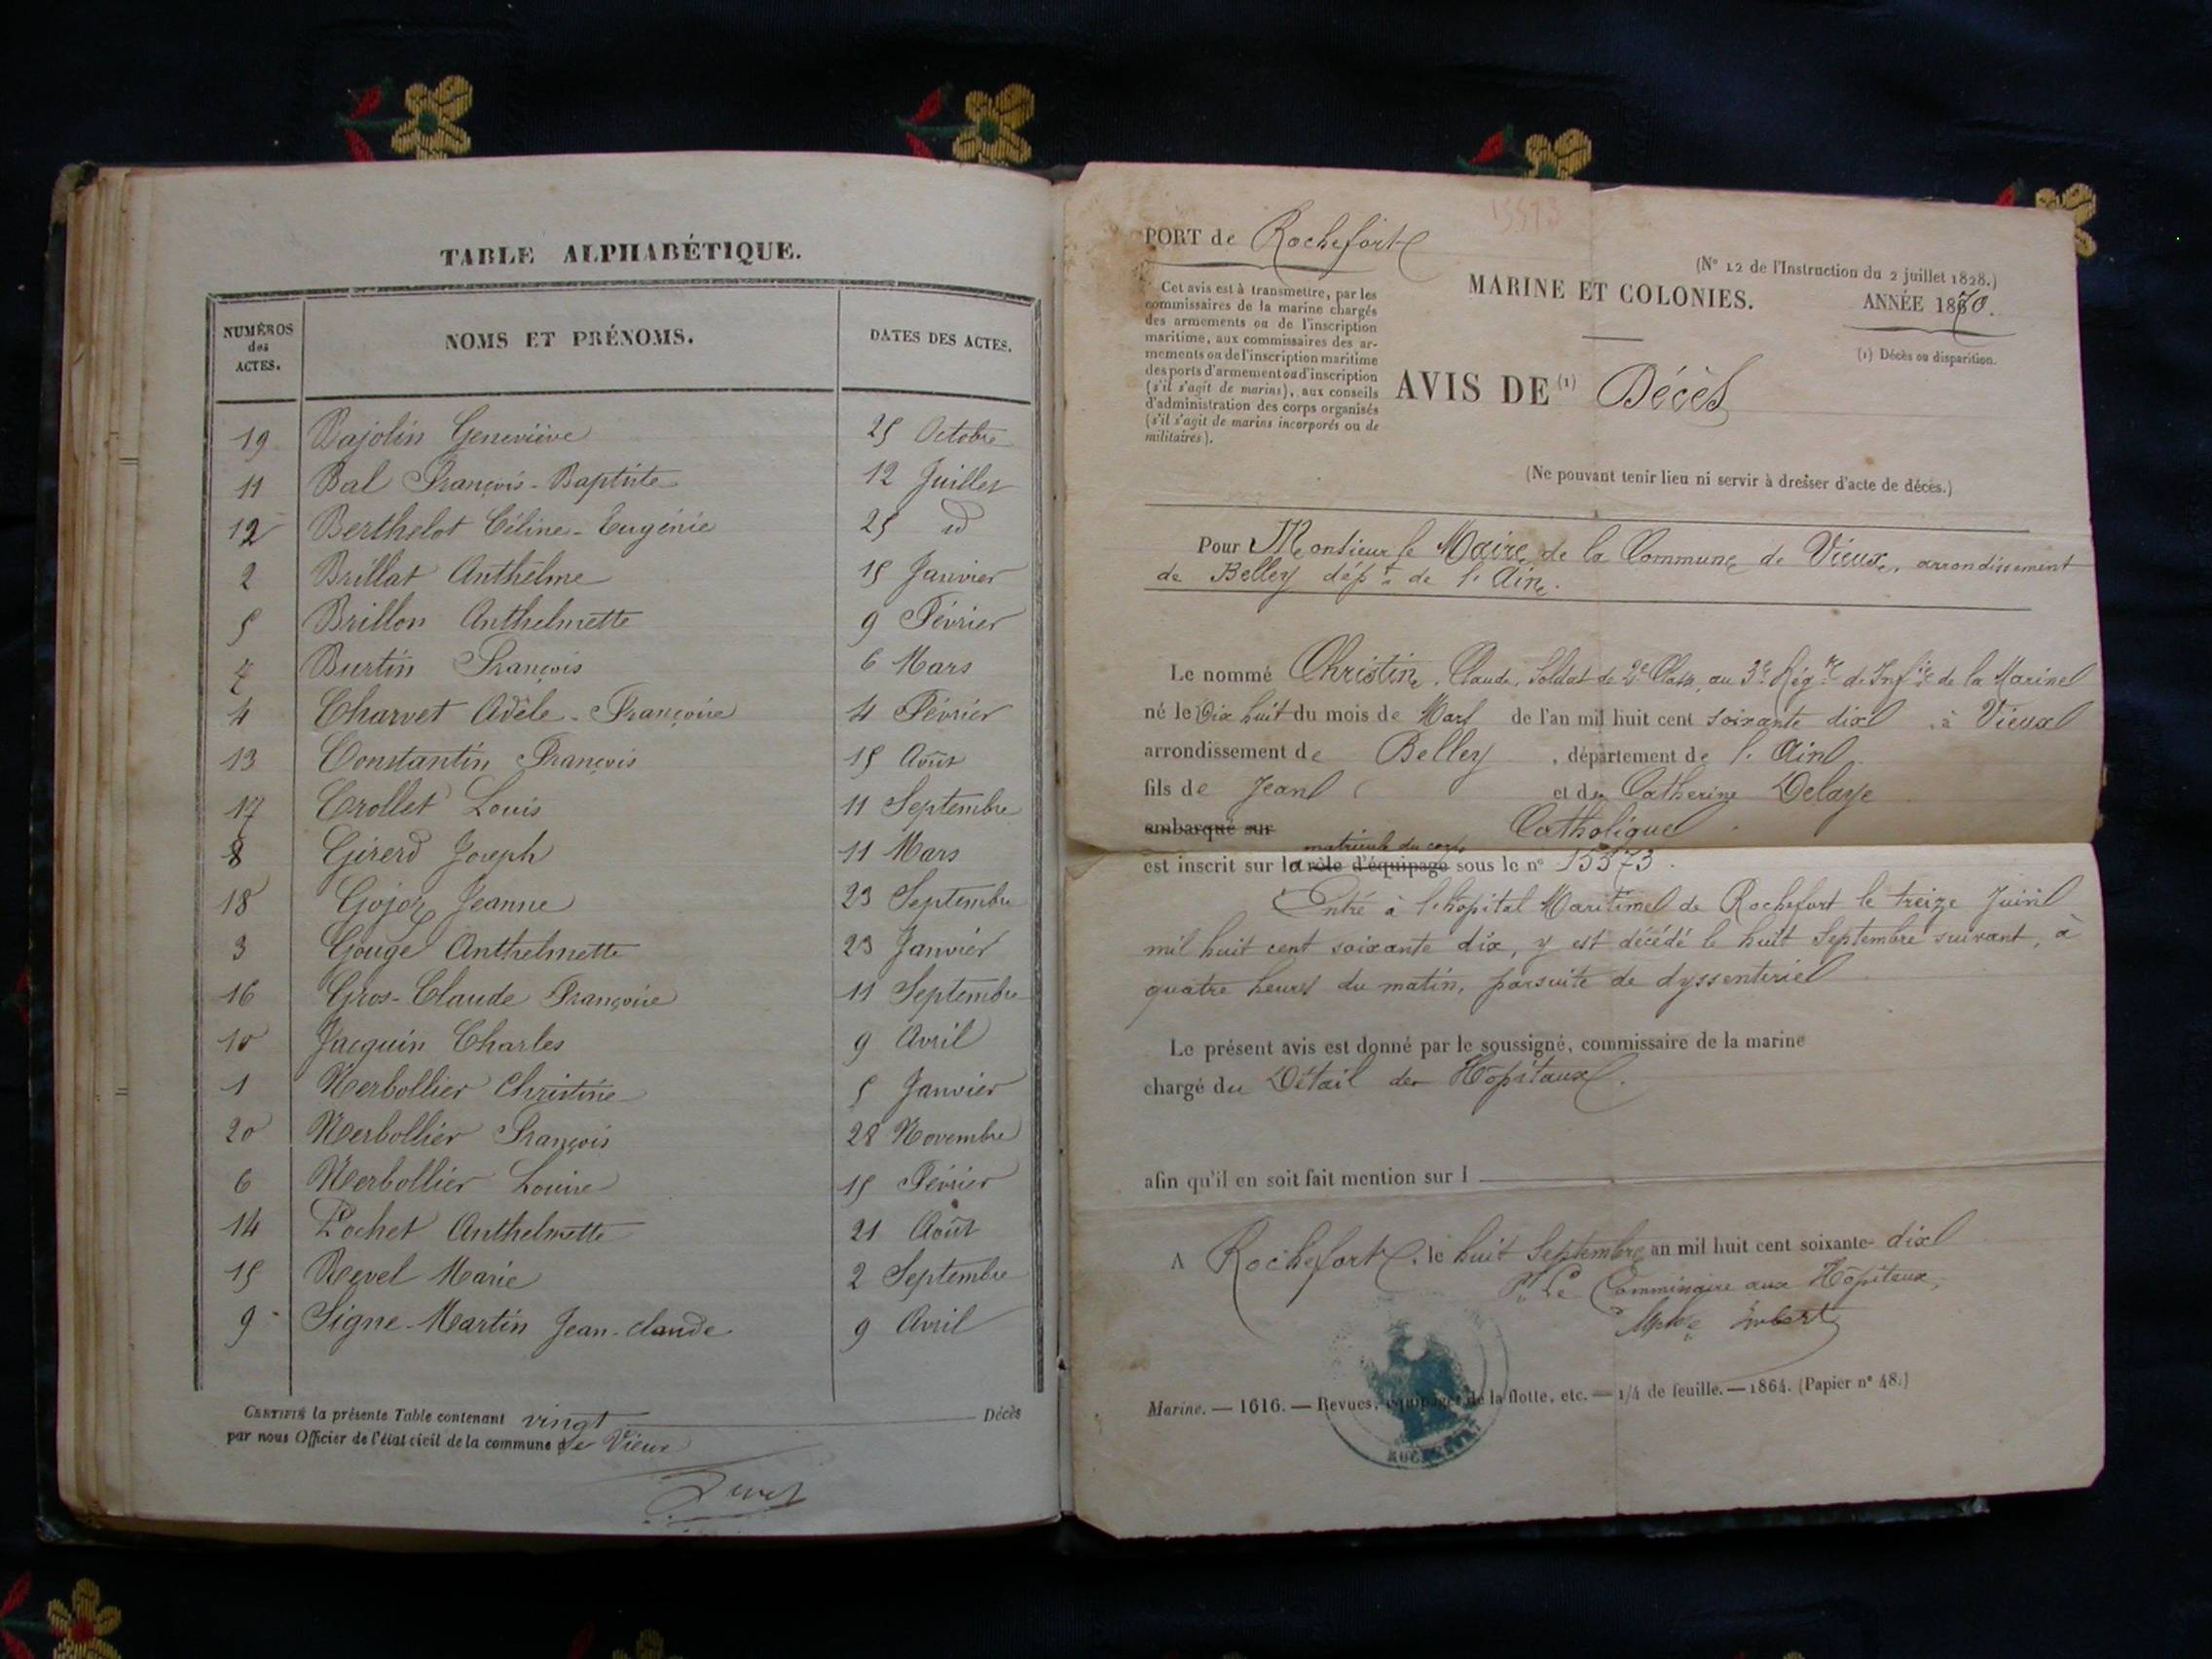 TABLE ALPHABÉTIQUE.
NUMÉROS des ACTES. NOMS ET PRÉNOMS. DATES DES ACTES.
19 Bajolin Geneviève 25 Octobre
11 Bal François-Baptiste 12 Juillet
12 Berthelot Céline-Eugénie 25 id
2 Brillat Anthelme 15 Janvier
5 Brillon Anthelmette 9 Février
7 Burtin François 6 Mars
4 Charvet Adèle-Françoise 4 Février
13 Constantin François 15 Août
17 Crollet Louis 11 Septembre
8 Girerd Joseph 11 Mars
18 Gojoz Jeanne 23 Septembre
3 Gouge Anthelmette 23 Janvier
16 Gros-Claude Françoise 11 Septembre
10 Jacquin Charles 9 Avril
1 Merbollier Christine 5 Janvier
20 Merbollier François 28 Novembre
6 Merbollier Louise 15 Février
14 Pochet Anthelmette 21 Août
15 Revel Marie 2 Septembre
9 Signe-Martin Jean-claude 9 Avril
CERTIFIÉ la présente Table contenant vingt Décès
par nous Officier de l'état civil de la commune de Vieux
PORT de Rochefort
Cet avis est à transmettre, par les
commissaires de la marine chargés
des armements ou de l'inscription
maritime, aux commissaires des ar-
mements ou de l'inscription maritime
des ports d'armement ou d'inscription
(s'il s'agit de marins), aux conseils
d'administration des corps organisés
(s'il s'agit de marins incorporés ou de
militaires).
(N° 12 de l'Instruction du 2 juillet 1828.)
MARINE ET COLONIES.
ANNÉE 1870.
(1) Décès ou disparition.
AVIS DE (1) Décès
(Ne pouvant tenir lieu ni servir à dresser d'acte de décès.)
Pour Monsieur le Maire de la Commune de Vieux, arrondissement
de Belley dép.t de l'Ain.
Le nommé Christin, Claude, Soldat de 2e Classe, au 3e Rég.nt de Inf.ie de la Marine
né le Dix huit du mois de Mars de l'an mil huit cent soixante dix à Vieux
arrondissement de Belley, département de l'Ain
fils de Jean et de Catherine Delaye
embarqué sur Catholique
matricule du corps
est inscrit sur la rôle d'équipage sous le n° 15373.
Entré à l'hôpital Maritime de Rochefort le treize Juin
mil huit cent soixante dix, y est décédé le huit Septembre suivant, à
quatre heures du matin, par suite de dyssenterie
Le présent avis est donné par le soussigné, commissaire de la marine
chargé du Détail des Hôpitaux.
afin qu'il en soit fait mention sur l
A Rochefort, le huit Septembre an mil huit cent soixante-dix
P. Le Commissaire aux Hôpitaux,
Marine. — 1616. — Revues, équipages de la flotte, etc. — 1/4 de feuille. — 1864. (Papier n° 48.)
ROCHEFORT